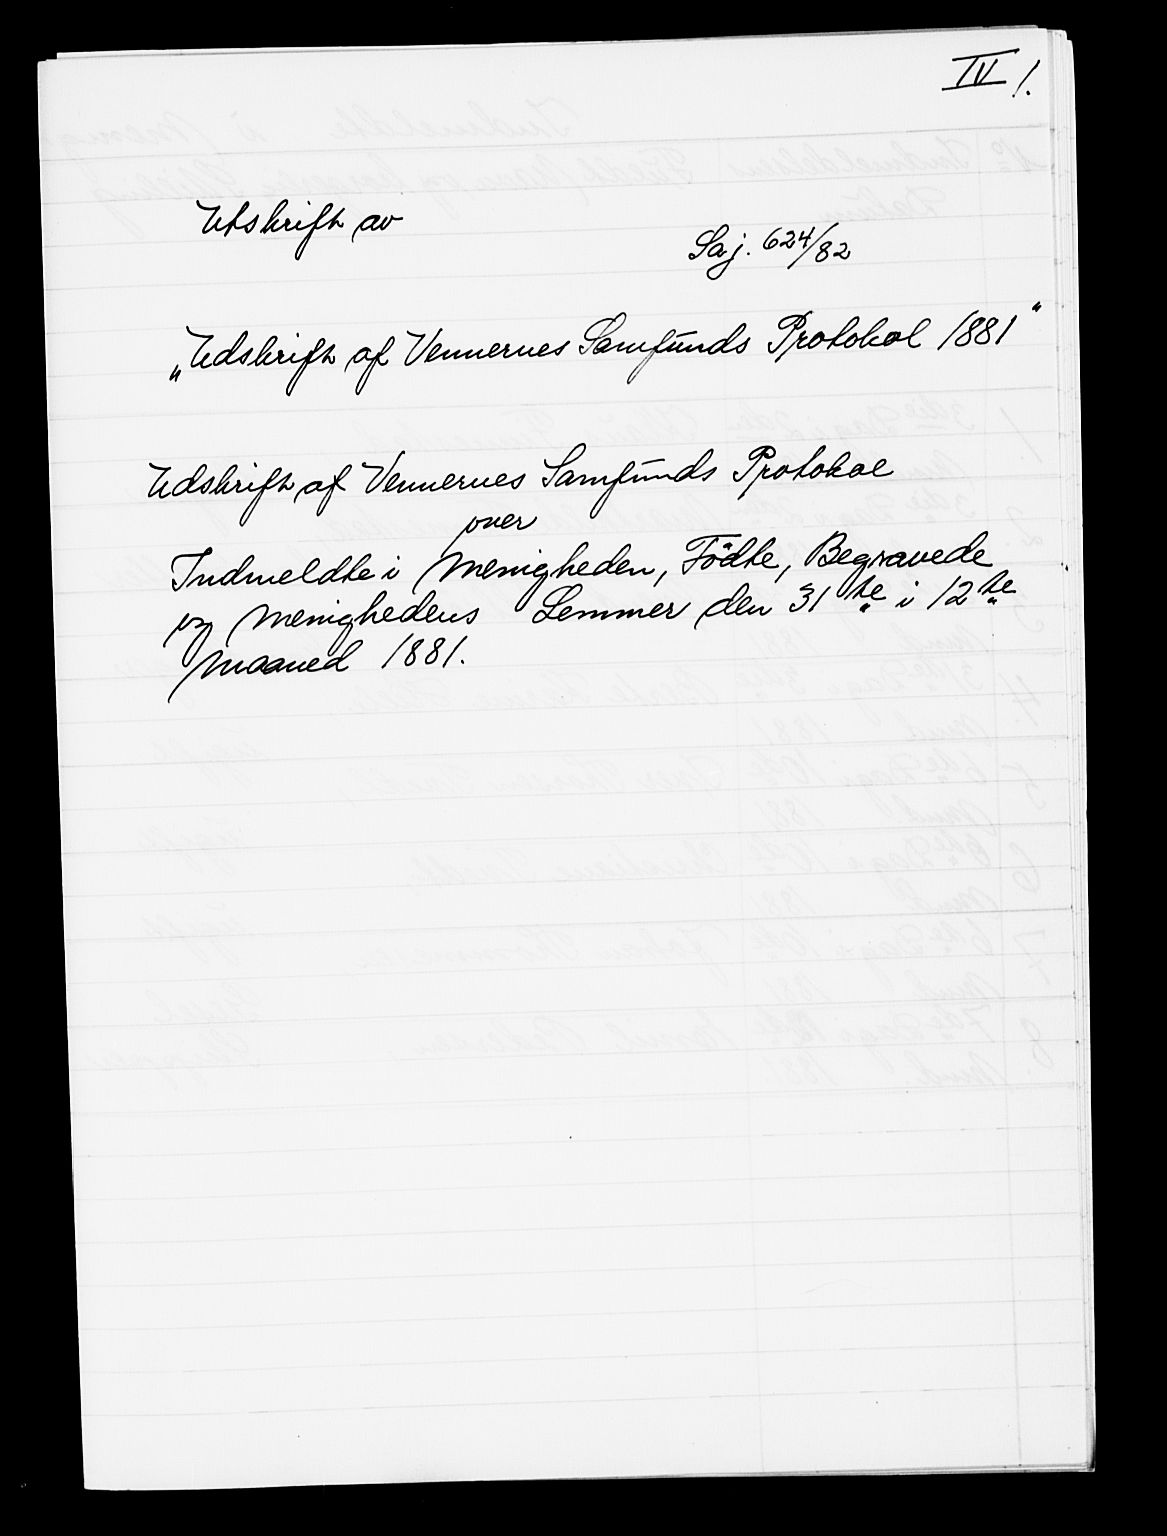 IV 1.
Utskrift av
Saj. 624/82
„Udskrift af Vennernes Samfunds Protokol 1881"
Udskrift af Vennernes Samfunds Protokol
over
Indmeldte i Menigheden, Födte, Begravede
og Menighedens Lemmer den 31te i 12te
Maaned 1881.